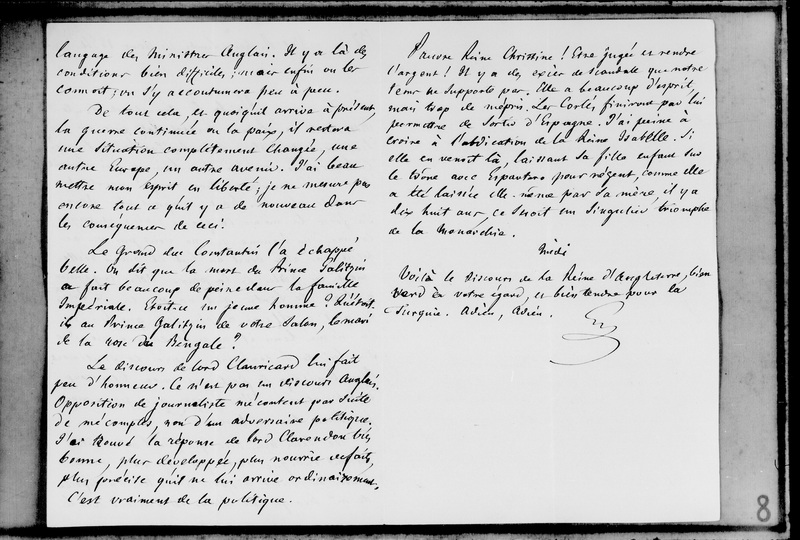 langage des Ministres Anglais. Il y a là des
conditions bien difficiles ; mais enfin on les
connoit ; on s'y accoutumera peu à peu.
De tout cela, et quoiqu'il arrive à présent,
la guerre continuée ou la paix, il restera
une situation complètement changée, une
autre Europe, un autre avenir. J'ai beau
mettre mon esprit en liberté ; je ne mesure pas
encore tout ce qu'il y a de nouveau dans
les conséquences de ceci.
Le Grand duc Constantin l'a échappé
belle. On dit que la mort du Prince Galitzin
a fait beaucoup de peine dans la famille
Impériale. Etoit-ce un jeune homme ?
il au Prince Galitzin de votre Salon, le mari
de la rose du Bengale ?
Le discours de lord Clanricard lui fait
peu d'honneur. Ce n'est pas un discours Anglais.
Opposition de journaliste mécontent par suite
de mécomptes, non d'un adversaire politique.
J'ai trouvé la réponse de lord Clarendon très
bonne, plus développée, plus nourrie de faits,
plus précise qu'il ne lui arrive ordinairement.
C'est vraiment de la politique.
Pauvre Reine Christine ! Etre jugée et rendre
l'argent ! Il y a des excès de scandale que notre
tems ne supporte pas. Elle a beaucoup d'esprit,
mais trop de mépris. Les Cortès finiront par lui
permettre de sortir d'Espagne. J'ai peine à
croire à l'abdication de la Reine Isabelle. Si
elle en venoit là, laissant sa fille enfant sur
le trône avec Espartero pour régent, comme elle
a été laissée elle-même par sa mère, il y a
dix huit ans, ce seroit un singulier triomphe
de la Monarchie.
Midi
Voilà le discours de la Reine d'Angleterre, bien
verd à votre égard, et bien tendre pour la
Turquie. Adieu, Adieu.
G
8